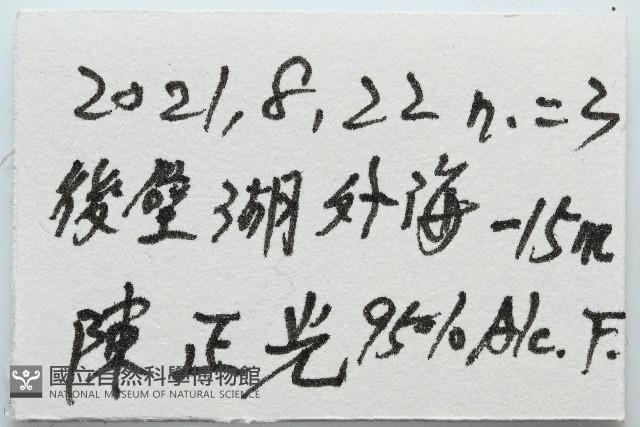 2021,8,22 n.=3
後壁湖外海 -15m
陳正光 95% Alc. F.
國立自然科學博物館
NATIONAL MUSEUM OF NATURAL SCIENCE